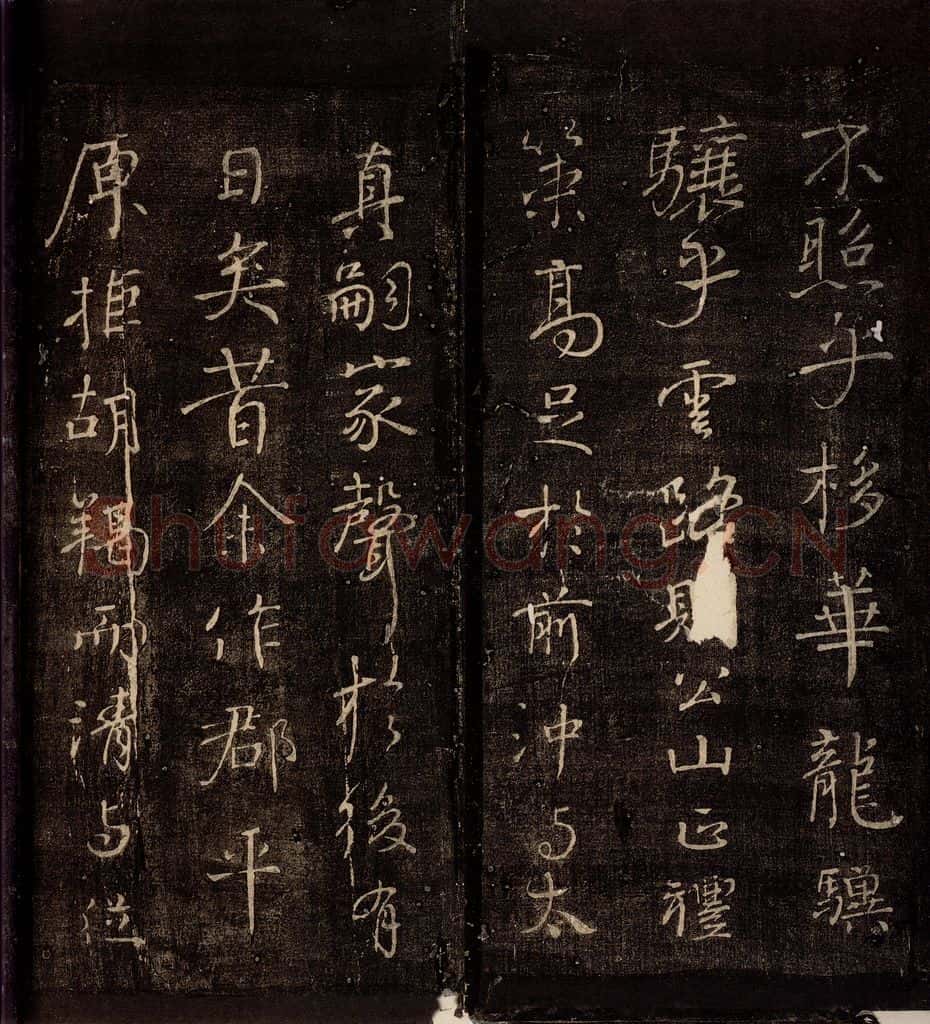 不照乎栘華龍驥
驤乎雲路則公山正禮
策高足於前沖与太
真嗣家聲於後有
日矣昔余作郡平
原拒胡羯而清与從
Shufawang.CN